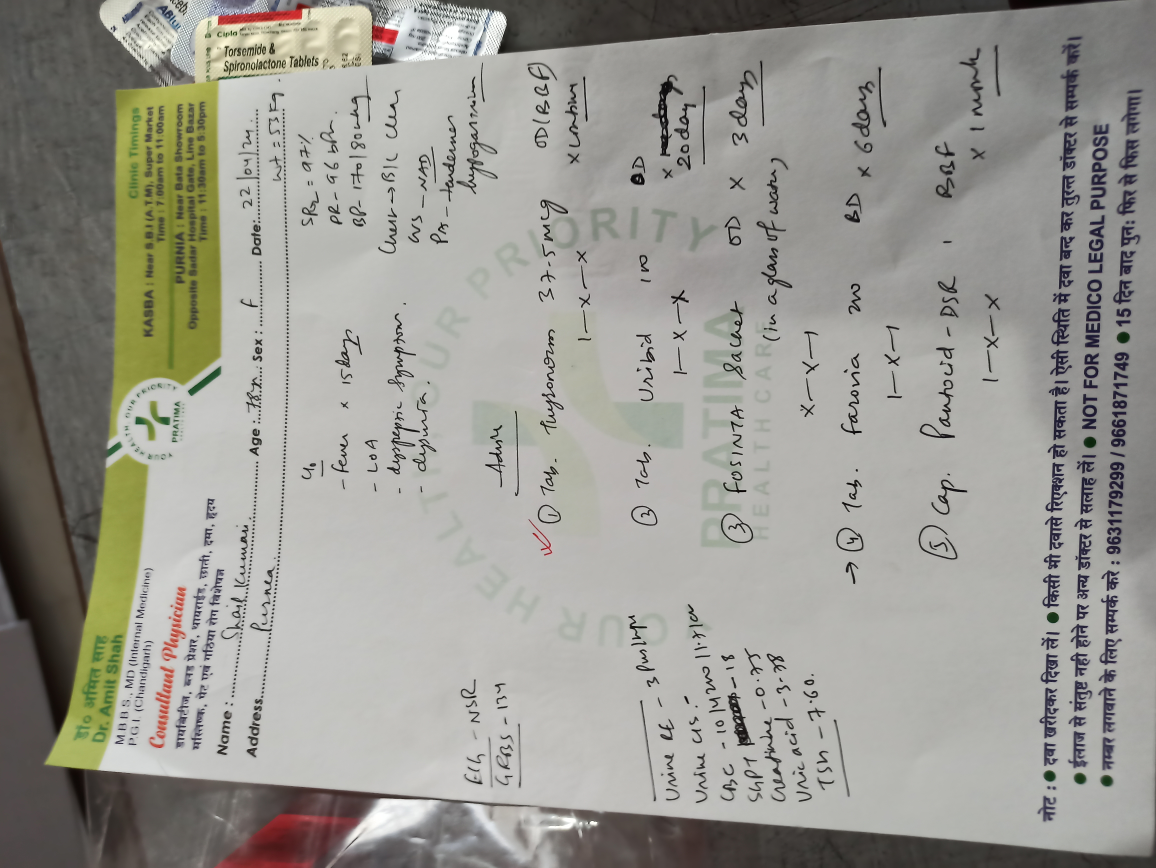 Cipla
Torsemide &
Spironolactone Tablets
डा० अमित साह
Dr. Amit Shah
M.B.B.S., MD (Internal Medicine)
P.G.I. (Chandigarh)
Consultant Physician
डायबिटीज, ब्लड प्रेशर, थायराईड, छाती, दमा, हृदय
मस्तिष्क, पेट एवं गठिया रोग विशेषज्ञ
YOUR HEALTH OUR PRIORITY
PRATIMA
Clinic Timings
KASBA : Near S.B.I (A.T.M), Super Market
Time : 7:00am to 11:00am
PURNIA : Near Bata Showroom
Opposite Sadar Hospital Gate, Line Bazar
Time : 11:30am to 5:30pm
Name : Shail Kumari Age : 78 Sex : F Date: 22/04/24
Address Purnea Wt = 53 kg.
C/o
- Fever x 15 days
- LOA
- dyspeptic symptoms.
- dysuria.
SPO2 = 97%
PR - 96 bpm.
BP - 170/80 mmHg
Chest → B/L Clear
CVS - NAD
P/A - tenderness
hypogastrium
ECG - NSR
GRBS - 134
Advise
① Tab. Thyronorm 37.5 mcg OD (BBF)
1-x-x x continue
② Tab. Uribid 100 BD
1-x-x x 20 day
③ FOSINTA Sachet OD x 3 days
(in a glass of water)
x-x-1
→ ④ Tab. Faronia 200 BD x 6 days
1-x-1
⑤ Cap. Pantocid-DSR 1 BBF
1-x-x x 1 month
Urine RE - 3 pus/hpf
Urine C/S -
CBC - 10.4/
SGPT - 18
Creatinine - 0.75
Uric acid - 3.78
TSH - 7.60.
YOUR HEALTH OUR PRIORITY
PRATIMA
HEALTHCARE
नोट : ● दवा खरीदकर दिखा लें। ● किसी भी दवासे रिएक्शन हो सकता है। ऐसी स्थिति में दवा बन्द कर तुरन्त डॉक्टर से सम्पर्क करें।
● ईलाज से संतुष्ट नही होने पर अन्य डॉक्टर से सलाह लें। ● NOT FOR MEDICO LEGAL PURPOSE
● नम्बर लगवाने के लिए सम्पर्क करे : 9631179299 / 9661871749 ● 15 दिन बाद पुनः फिर से फिस लगेगा।